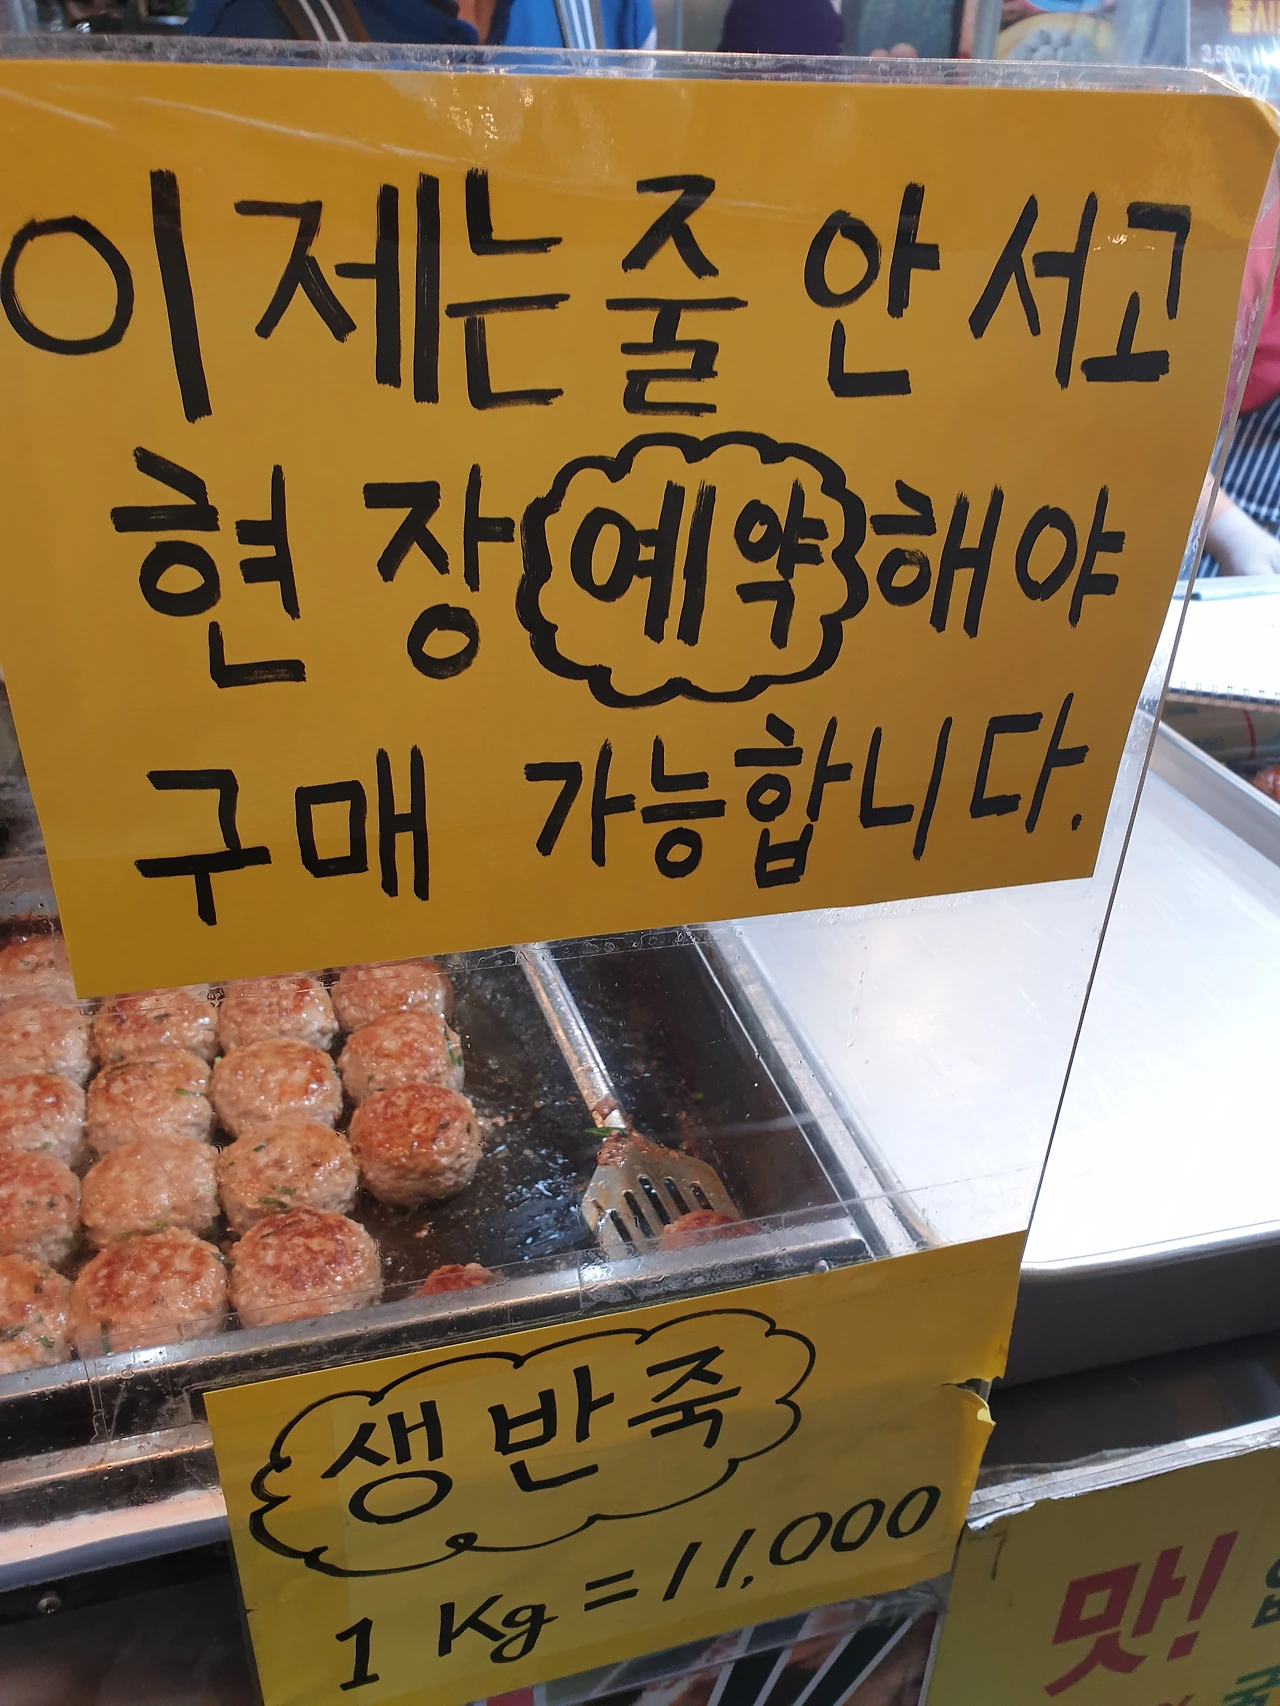 이제는 줄 안 서고
현장 예약 해야
구매 가능합니다.
생반죽
1 Kg = 11,000
맛!
2,500